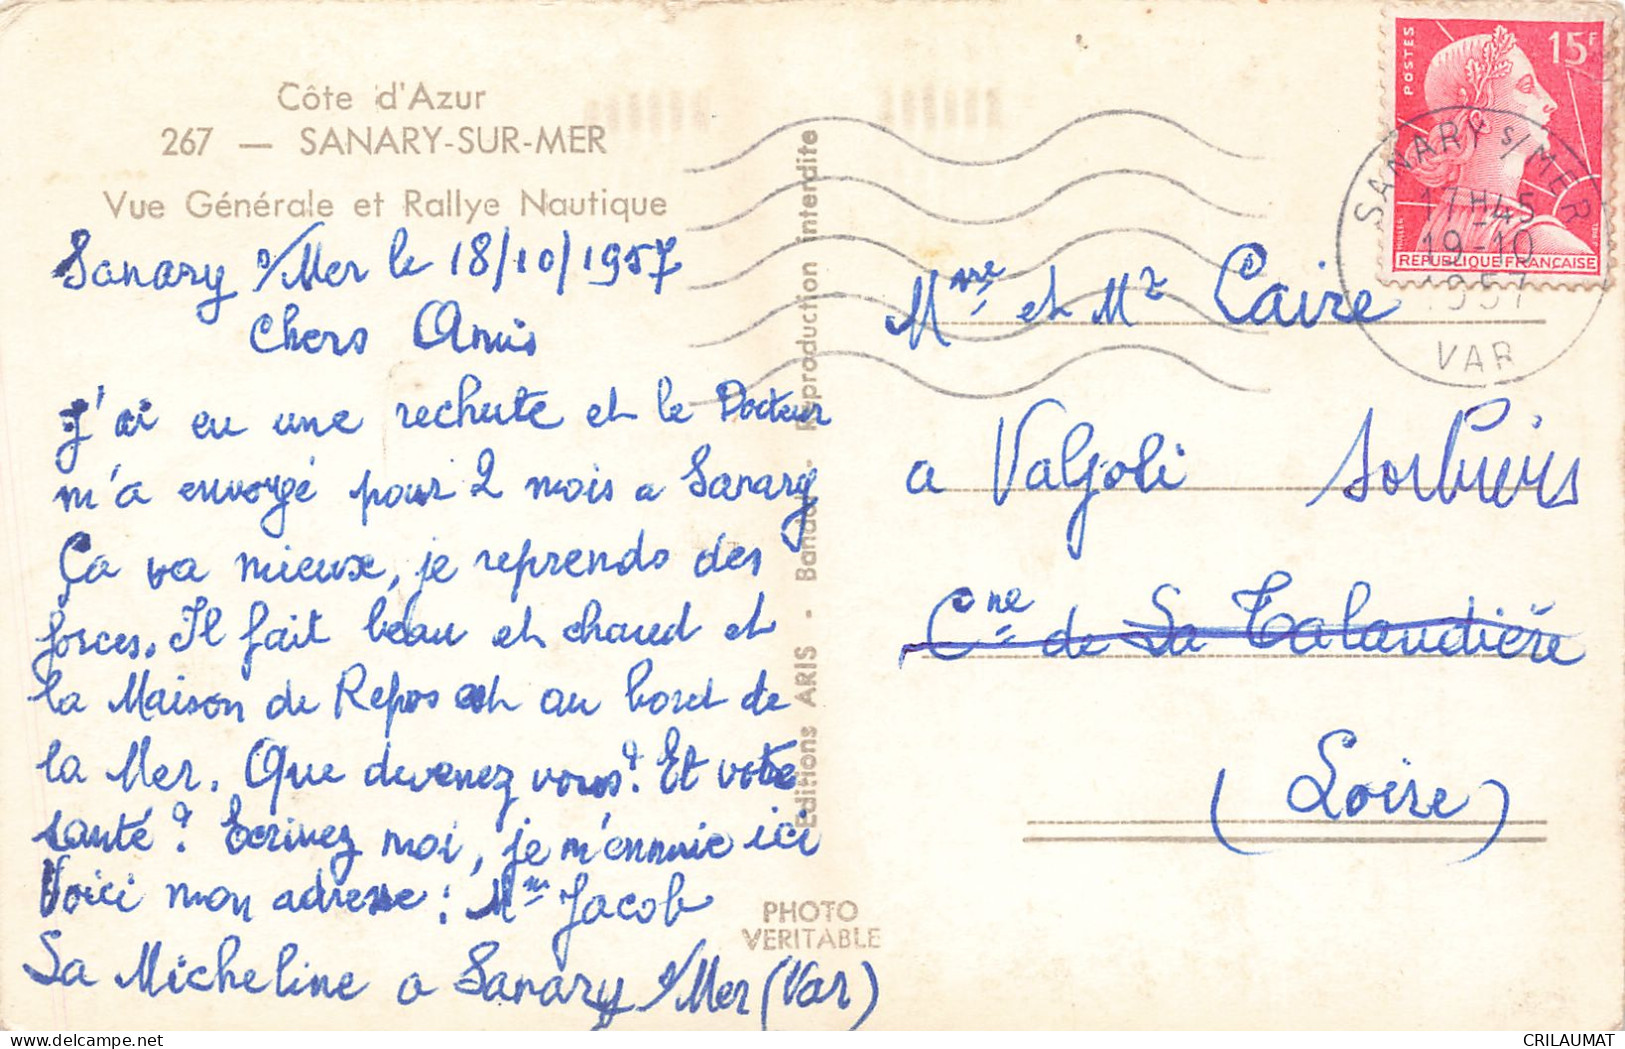 Côte d'Azur
267 — SANARY-SUR-MER
Vue Générale et Rallye Nautique
Sanary s/Mer le 18/10/1957
Chers Amis
J'ai eu une rechute et le Docteur
m'a envoyé pour 2 mois a Sanary
Ça va mieux, je reprends des
forces. Il fait beau et chaud et
la Maison de Repos est au bord de
la Mer. Que devenez vous? Et votre
santé? Ecrivez moi, je m'ennuie ici
Voici mon adresse: Mm Jacob
La Micheline a Sanary s/Mer (Var)
Editions ARIS - Bandol - Reproduction interdite
PHOTO
VERITABLE
POSTES
15F
MULLER
REPUBLIQUE FRANÇAISE
SANARY S/MER
17H45
19-10
1957
VAR
Mme et Mr Caire
a Valjoli Sorbiers
Cne de La Talaudière
(Loire)
CRILAUMAT